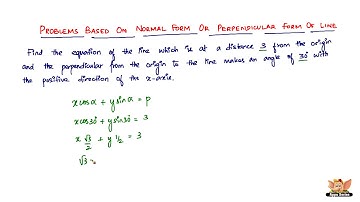 PROBLEMS BASED ON NORMAL FORM OR PERPENDICULAR FORM OF LINE
Find the equation of the line which is at a distance 3 from the origin
and the perpendicular from the origin to the line makes an angle of 30° with
the positive direction of the x-axis.
x cos α + y sin α = p
x cos 30° + y sin 30° = 3
x √3/2 + y 1/2 = 3
√3